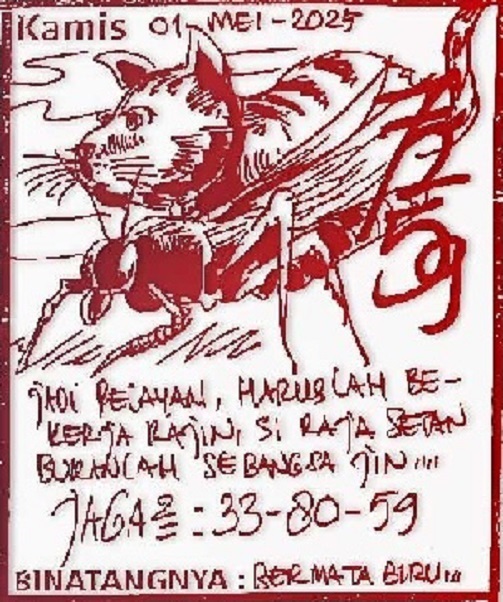 Kamis 01-MEI-2025
JADI PELAYAN, HARUSLAH BE-
KERJA RAJIN, SI RAJA SETAN
BUKANLAH SEBANGSA JIN....
JAGA2 : 33-80-59
BINATANGNYA : BERMATA BIRU...